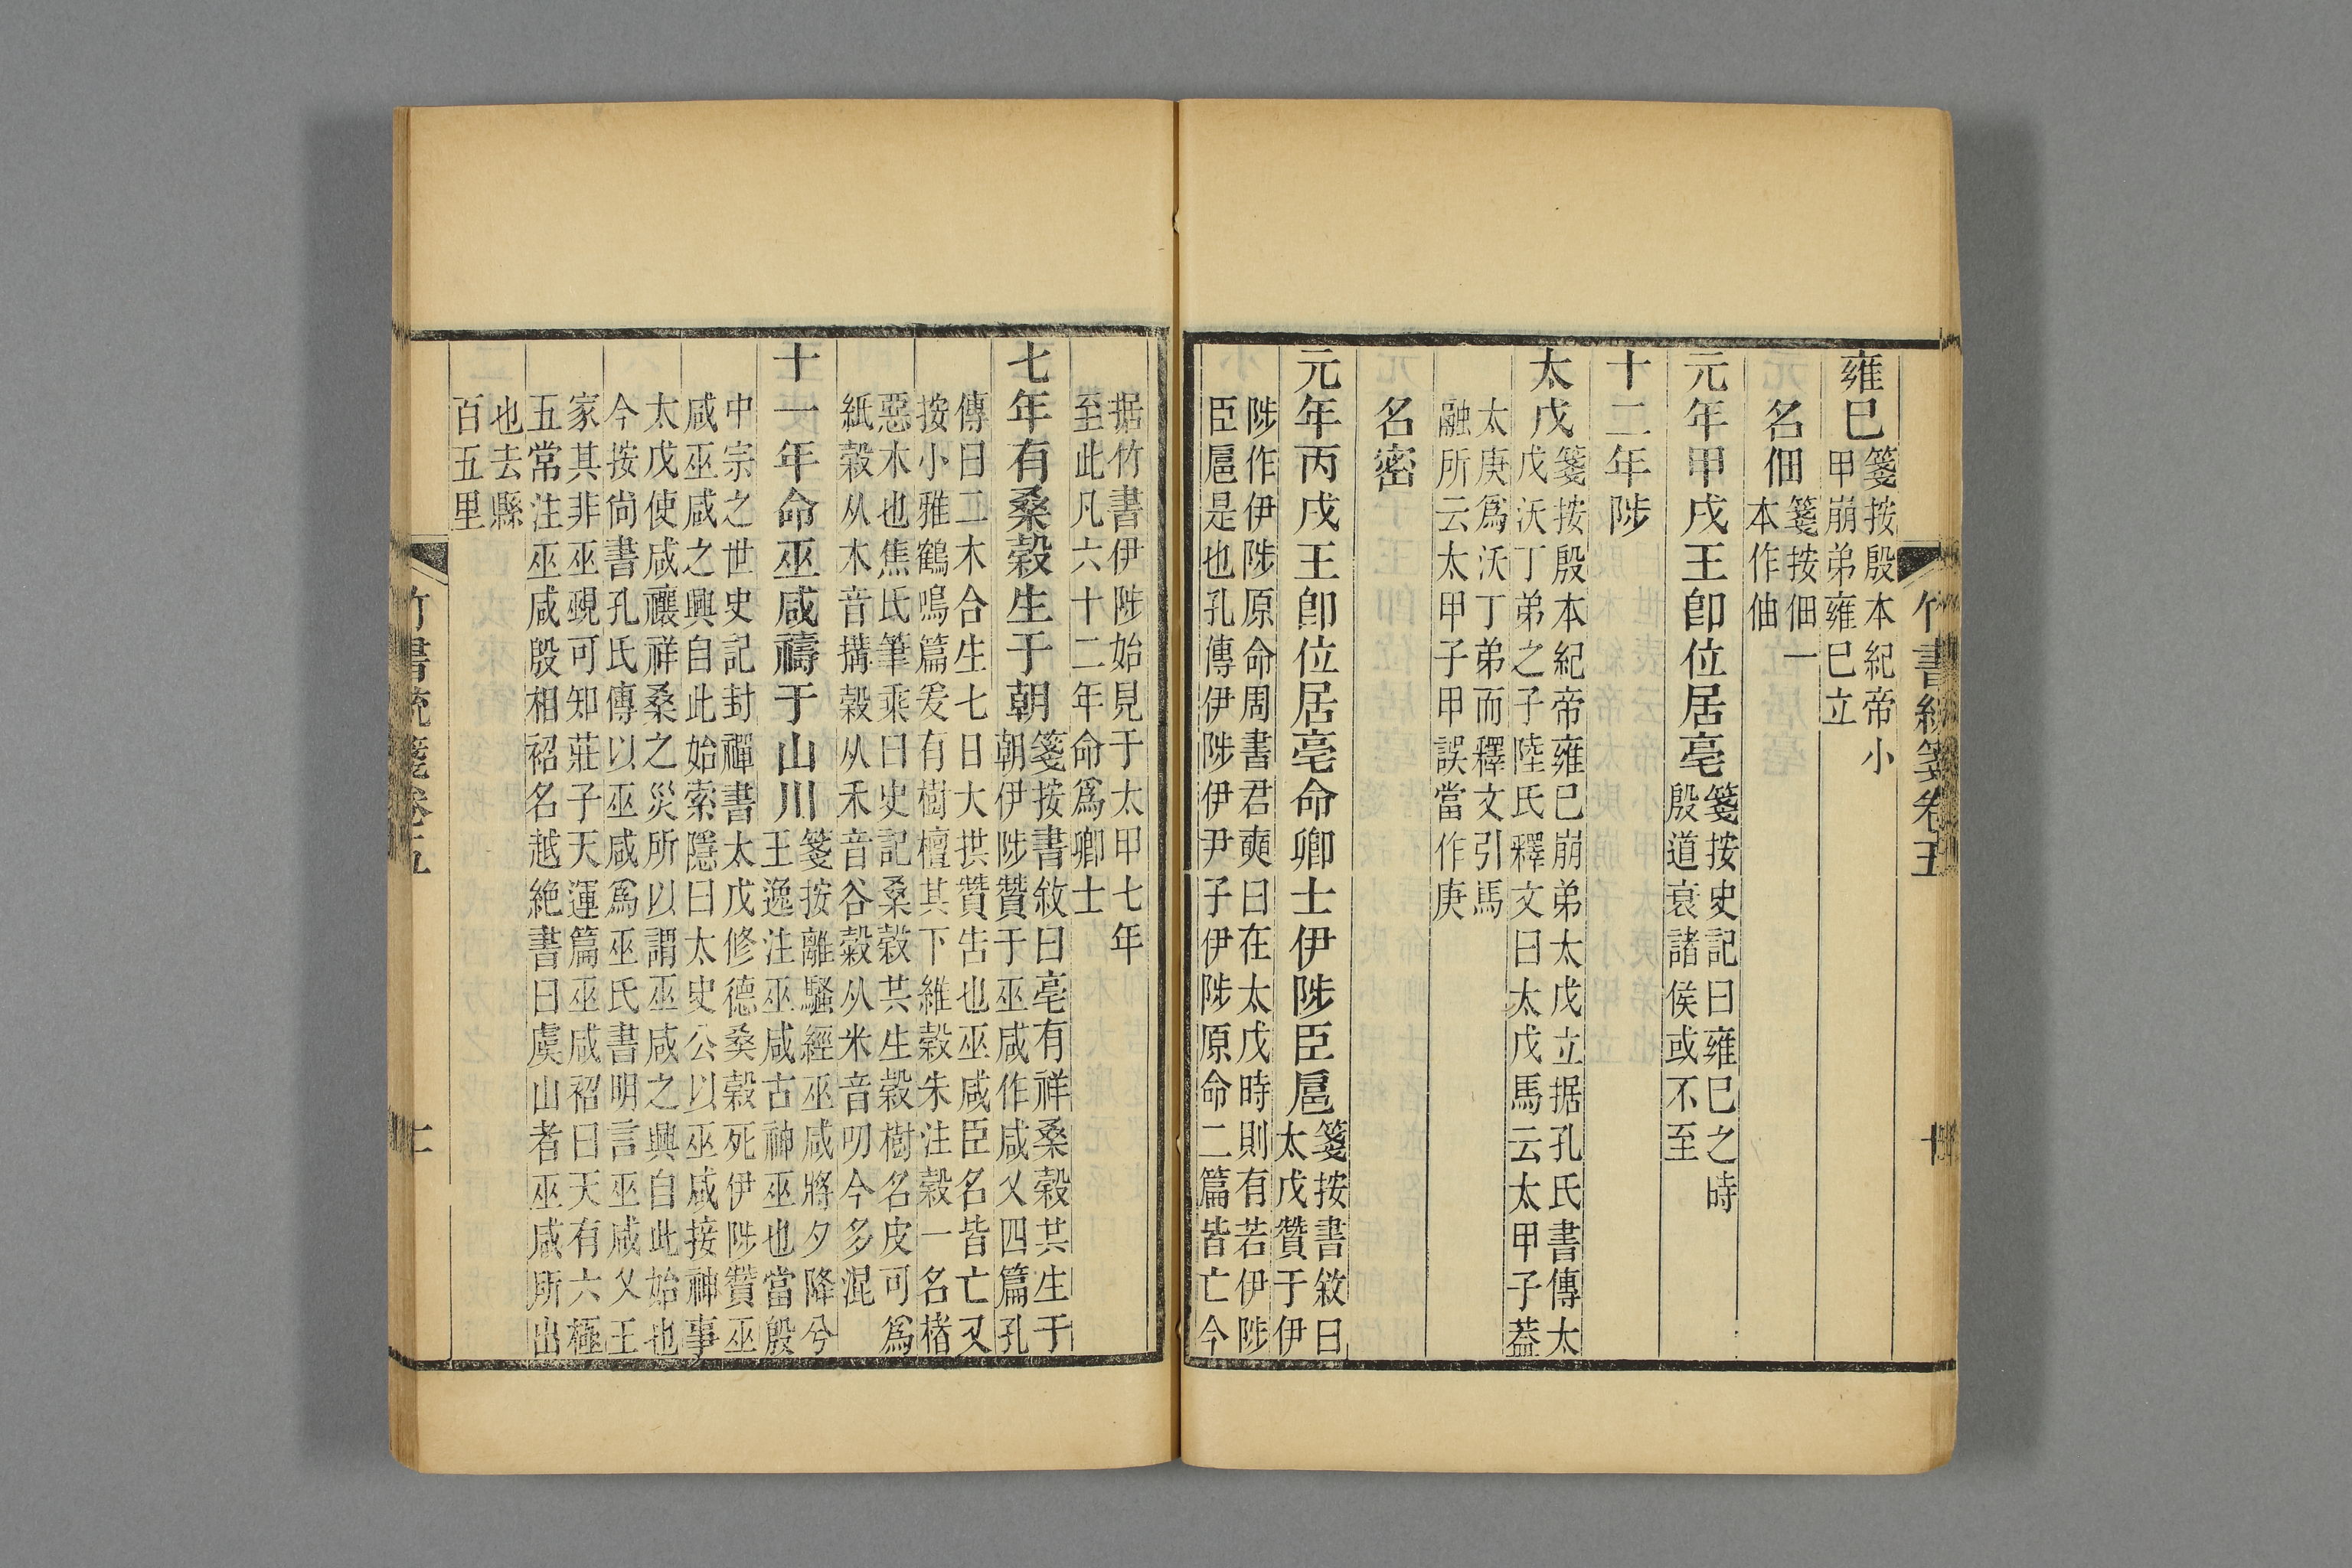 雍已箋按殷本紀帝小
甲崩弟雍巳立
名佃箋按佃一
本作伷
元年甲戌王卽位居亳箋按史記曰雍巳之時
殷道衰諸侯或不至
十二年陟
太戊箋按殷本紀帝雍巳崩弟太戊立据孔氏書傳太
戊沃丁弟之子陸氏釋文曰太戊馬云太甲子葢
太庚爲沃丁弟而釋文引馬
融所云太甲子子甲誤當作庚
名密
元年丙戌王卽位居亳命卿士伊陟臣扈箋按書敘曰
太戊贊于伊
陟作伊陟原命周書君奭曰在太戊時則有若伊陟
臣扈是也孔傳伊陟伊尹子伊陟原命二篇皆亡今
竹書統箋卷五
据竹書伊陟始見于太甲七年
至此凡六十二年命爲卿士
七年有桑榖生于朝箋按書敘曰亳有祥桑榖共生于
朝伊陟贊于巫咸作咸乂四篇孔
傳曰二木合生七日大拱贊告也巫咸臣名皆亡又
按小雅鶴鳴篇爰有樹檀其下維榖朱注榖一名楮
惡木也焦氏筆乘曰史記桑榖共生榖樹名皮可爲
紙榖从木音搆穀从禾音谷糓从米音叨今多混
十一年命巫咸禱于山川箋按離騷經巫咸將夕降兮
王逸注巫咸古神巫也當殷
中宗之世史記封禪書太戊修德桑榖死伊陟贊巫
咸巫咸之興自此始索隱曰太史公以巫咸接神事
太戊使咸禳祥桑之災所以謂巫咸之興自此始也
今按尙書孔氏傳以巫咸爲巫氏書明言巫咸乂王
家其非巫覡可知莊子天運篇巫咸袑曰天有六極
五常注巫咸殷相袑名越絶書曰虞山者巫咸所出
也去縣
百五里
竹書統箋卷五
十一